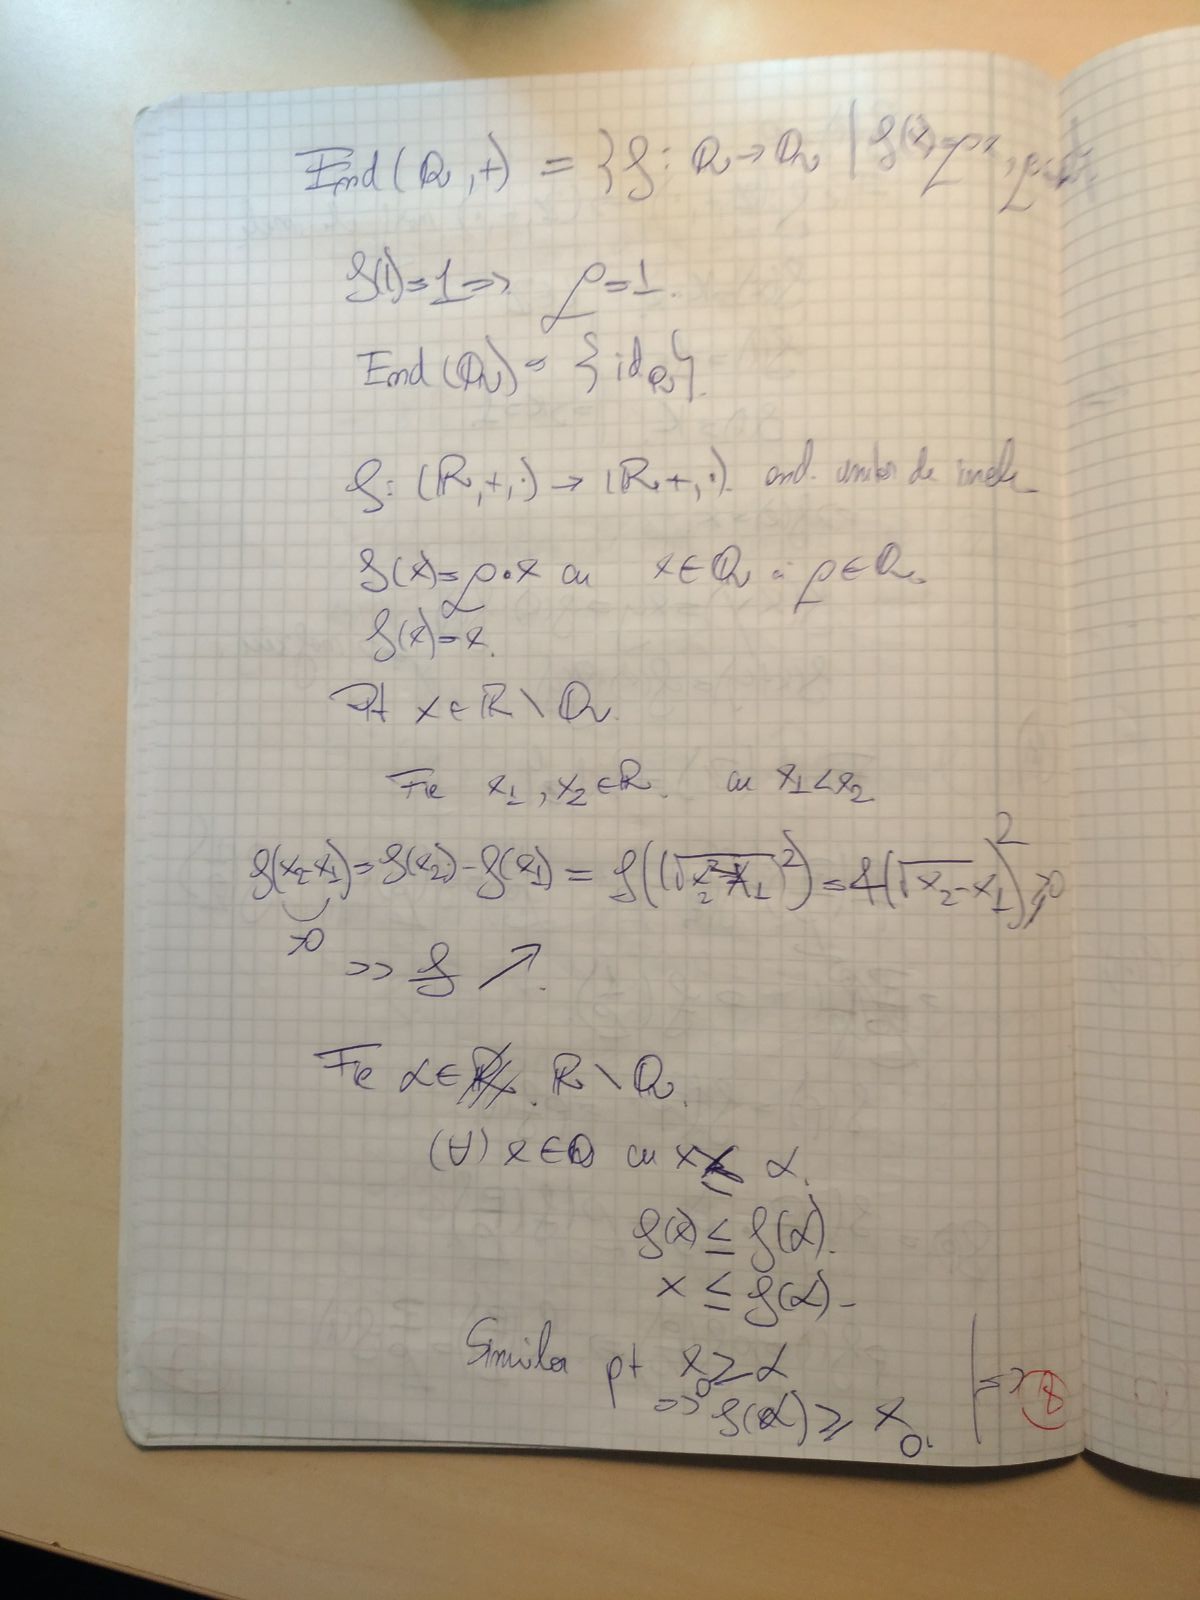 End(Q,+) = {f: Q→Q | f(x)=ρx, ρ
f(1)=1 => ρ=1.
End(Q)= {id_Q}.
f: (R,+,·) → (R,+,·). end. unitar de inele
f(x)=ρ·x cu x∈Q și ρ∈Q.
f(x)=x.
Pt x∈R\Q.
Fie x₁, x₂∈R. cu x₁<x₂
f(x₂-x₁)=f(x₂)-f(x₁) = f((√x₂-x₁)²) = f(√x₂-x₁)² ≥0
>0
=> f ↗.
Fie α∈ R\Q.
(∀) x∈Q cu x ≤ α.
f(x) ≤ f(α).
x ≤ f(α)-
Similar pt x₀≥α
=> f(α) ≥ x₀. | => 8